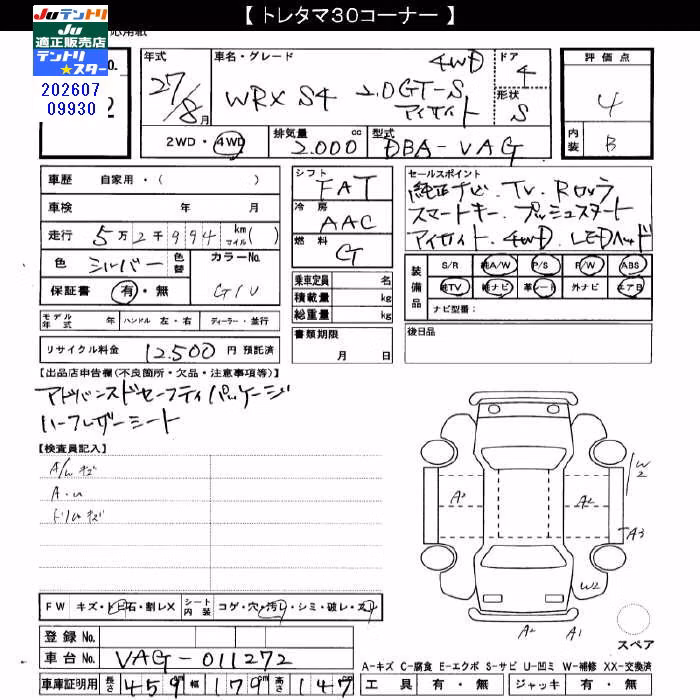 【 トレタマ30コーナー 】
JUテントリ
JU
適正販売店
テントリ
★スター
応用紙
No.
202607
09930
2
年式
27/8月
車名・グレード
WRX S4 2.0GT-S 4WD
アイサイト
ドア
4
形状
S
評価点
4
内装
B
2WD・4WD
排気量 2.000 cc
型式 DBA-VAG
車歴 自家用・( )
車検 年 月
走行 5万2千994 km マイル( )
色 シルバー 色替 カラーNo. G1U
保証書 有・無
シフト
FAT
冷房
AAC
燃料
G
乗車定員 名
積載量 kg
総重量 kg
セールスポイント
純正ナビ.TV.Rカメラ
スマートキー.プッシュスタート
アイサイト.4WD.LEDヘッド
装備品
S/R 純A/W P/S P/W ABS
純TV 純ナビ 革シート 外ナビ エアB
ナビ型番:
モデル年式 年 ハンドル 左・右 ディーラー・並行
書類期限
月 日
後日品
リサイクル料金 12.500 円 預託済
【出品店申告欄(不良箇所・欠品・注意事項等)】
アドバンスドセーフティパッケージ
ハーフレザーシート
【検査員記入】
A/W キズ
A.u
ドリムキズ
W2
A2 A2
A3
W2
A2 A1
スペア
FW キズ・トビ石・割レX シート内装 コゲ・穴・汚レ・シミ・破レ・スレ
登録No.
車台No. VAG-011272
車庫証明用 長さ 459cm 幅 179cm 高さ 147cm
A-キズ C-腐食 E-エクボ S-サビ U-凹ミ W-補修 XX-交換済
工具 有・無 ジャッキ 有・無